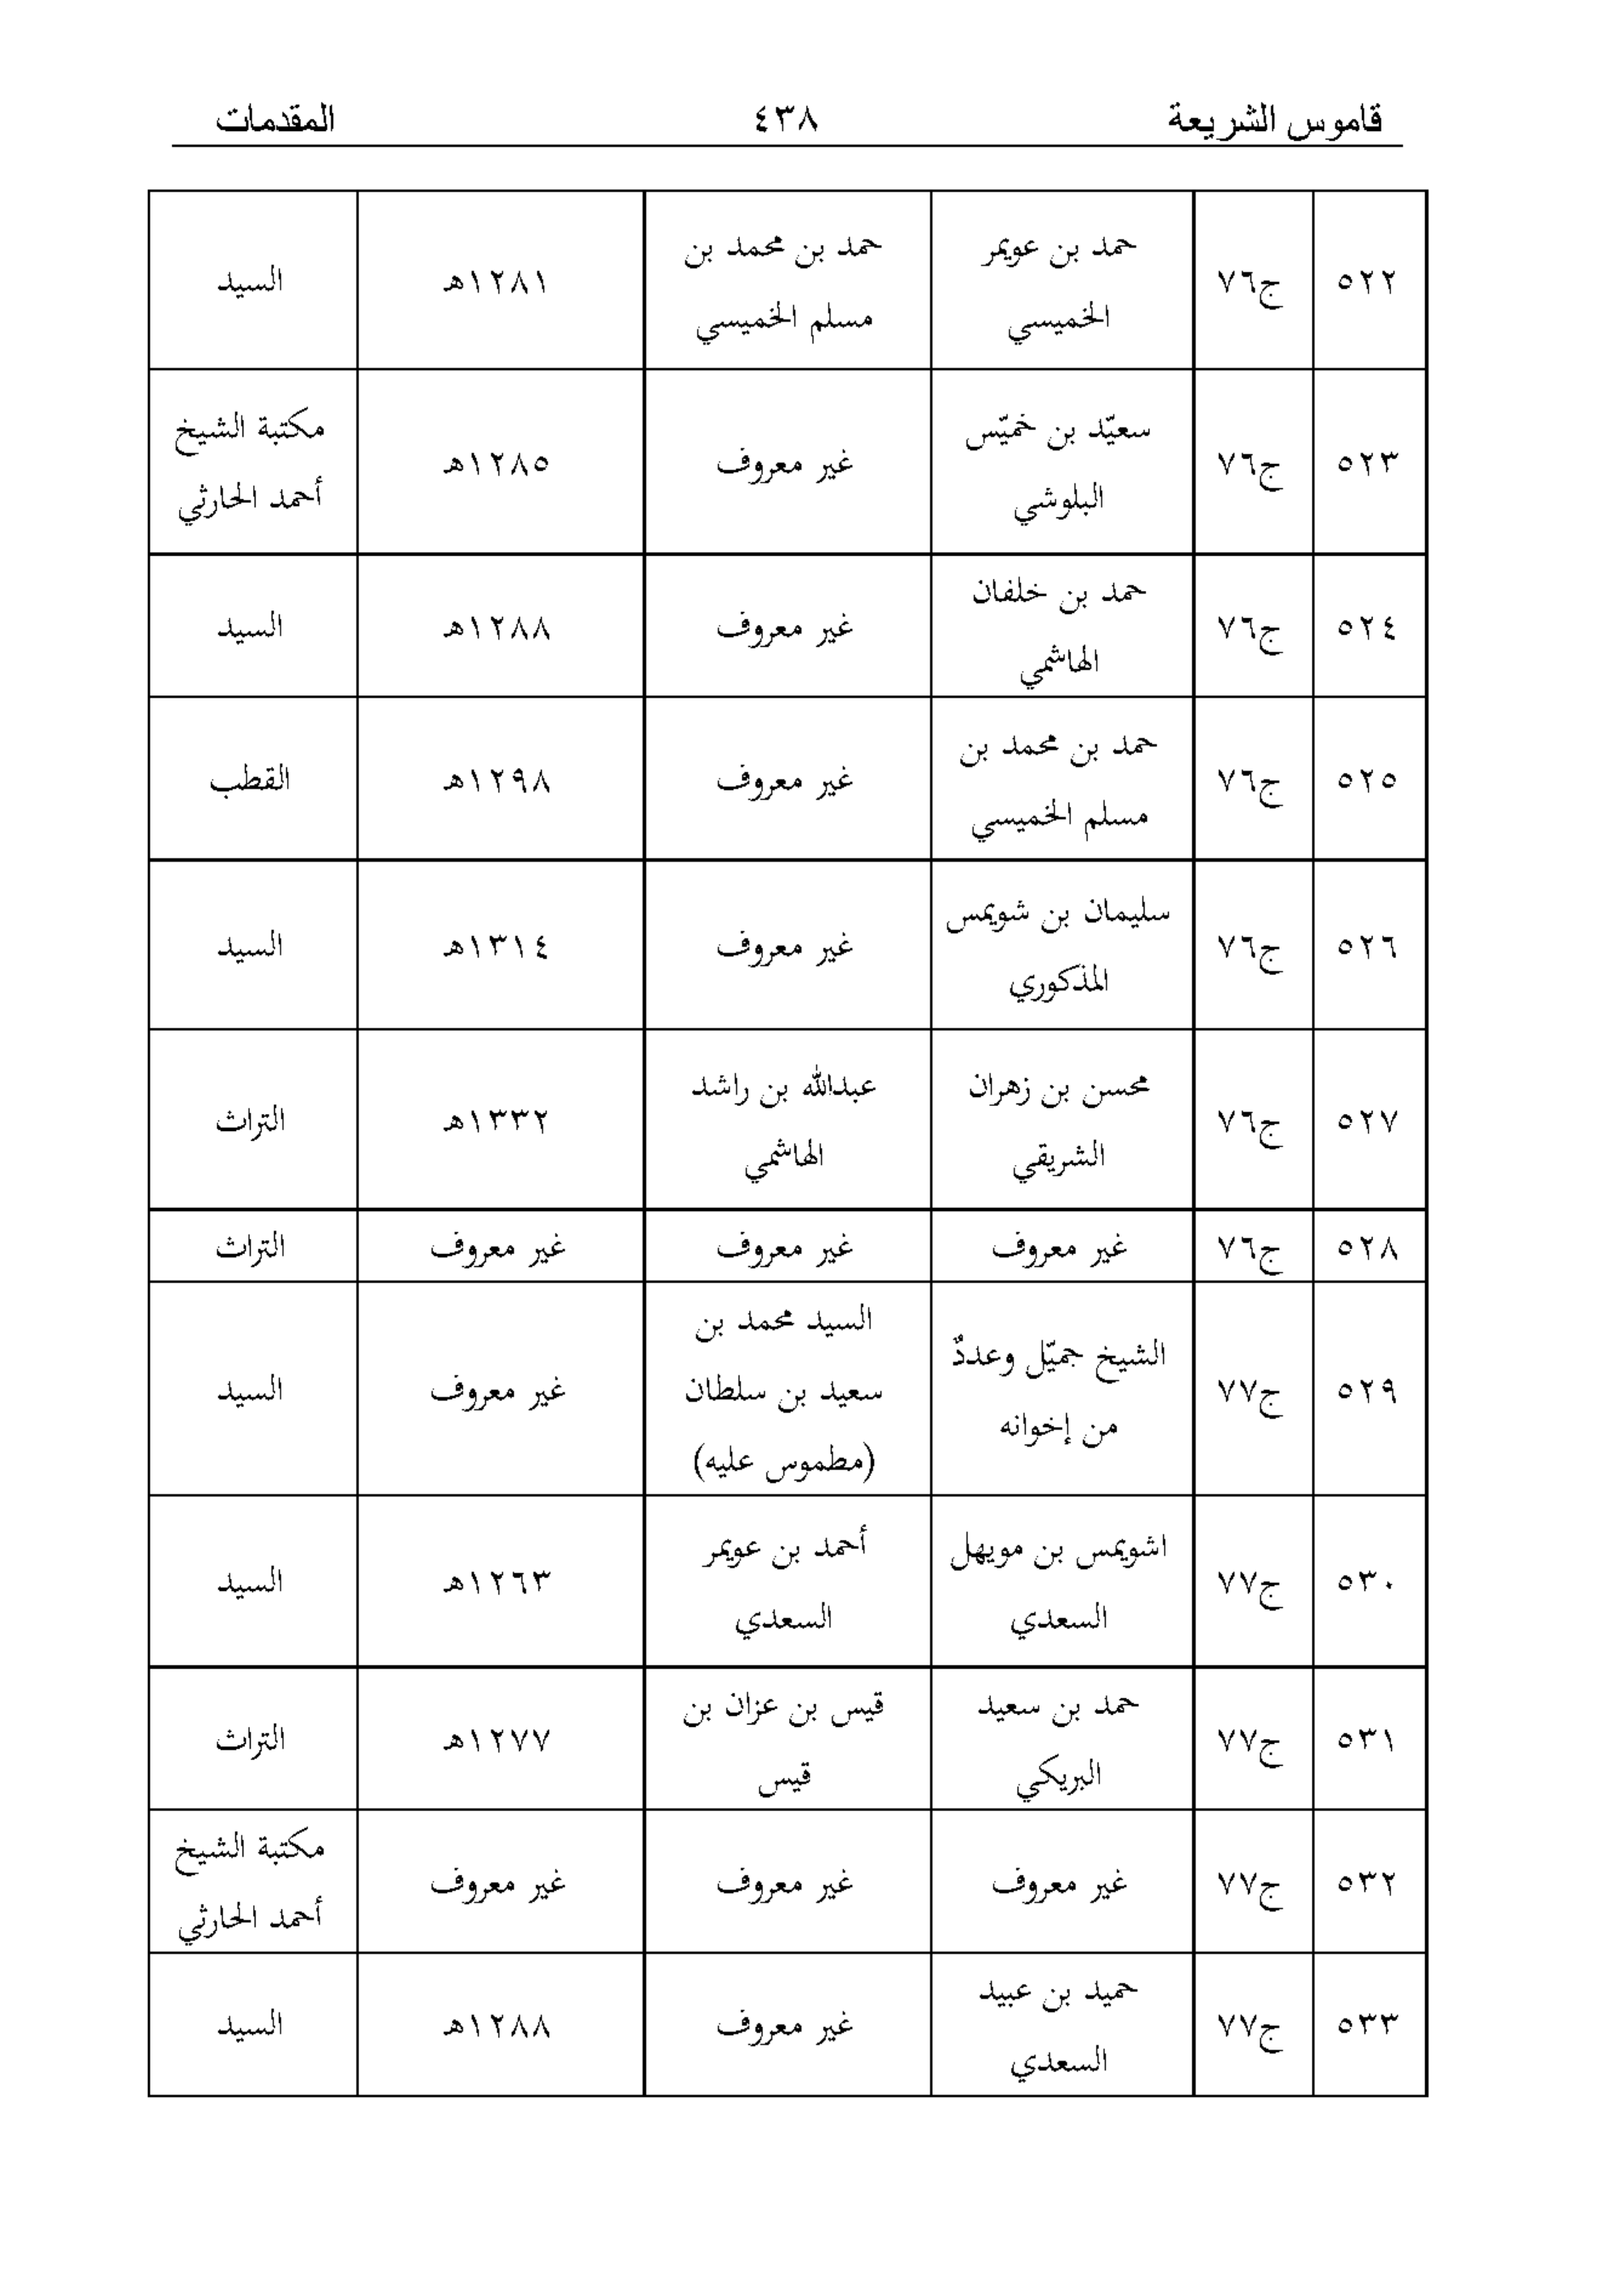 قاموس الشريعة ٤٣٨ المقدمات
٥٢٢ ج٧٦ حمد بن عويمر الخميسي حمد بن محمد بن مسلم الخميسي ١٢٨١هـ السيد
٥٢٣ ج٧٦ سعيّد بن خميّس البلوشي غير معروف ١٢٨٥هـ مكتبة الشيخ أحمد الحارثي
٥٢٤ ج٧٦ حمد بن خلفان الهاشمي غير معروف ١٢٨٨هـ السيد
٥٢٥ ج٧٦ حمد بن محمد بن مسلم الخميسي غير معروف ١٢٩٨هـ القطب
٥٢٦ ج٧٦ سليمان بن شويمس المذكوري غير معروف ١٣١٤هـ السيد
٥٢٧ ج٧٦ محسن بن زهران الشريقي عبدالله بن راشد الهاشمي ١٣٣٢هـ التراث
٥٢٨ ج٧٦ غير معروف غير معروف غير معروف التراث
٥٢٩ ج٧٧ الشيخ جميّل وعددٌ من إخوانه السيد محمد بن سعيد بن سلطان (مطموس عليه) غير معروف السيد
٥٣٠ ج٧٧ اشويمس بن مويهل السعدي أحمد بن عويمر السعدي ١٢٦٣هـ السيد
٥٣١ ج٧٧ حمد بن سعيد البريكي قيس بن عزان بن قيس ١٢٧٧هـ التراث
٥٣٢ ج٧٧ غير معروف غير معروف غير معروف مكتبة الشيخ أحمد الحارثي
٥٣٣ ج٧٧ حميد بن عبيد السعدي غير معروف ١٢٨٨هـ السيد